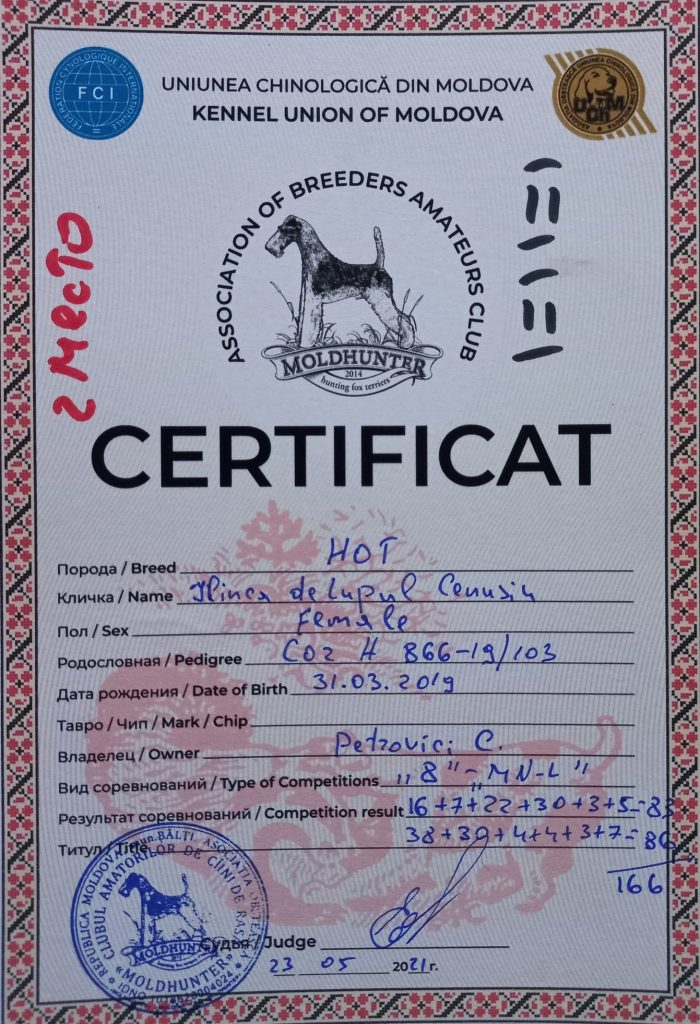 FEDERATION CYNOLOGIQUE INTERNATIONALE
FCI
UNIUNEA CHINOLOGICĂ DIN MOLDOVA
KENNEL UNION OF MOLDOVA
ASSOCIATION OF BREEDERS AMATEURS CLUB
MOLDHUNTER
2014
hunting fox terriers
2 место
CERTIFICAT
Порода / Breed НОТ
Кличка / Name Ilinca de Lupul Cenusiu
Пол / Sex Female
Родословная / Pedigree COR H 866-19/103
Дата рождения / Date of Birth 31.03.2019
Тавро / Чип / Mark / Chip
Владелец / Owner Petrovici C.
Вид соревнований / Type of Competitions „8" - „MN-L"
Результат соревнований / Competition result 16+7+22+30+3+5=83
Титул / Title 38+30+4+4+3+7=86
166
Судья / Judge
23 05 2021 г.
REPUBLICA MOLDOVA, mun. BĂLŢI, ASOCIAŢIA OBŞTEASCĂ
CLUBUL AMATORILOR DE CÎINI DE RASĂ
MOLDHUNTER
«MOLDHUNTER»